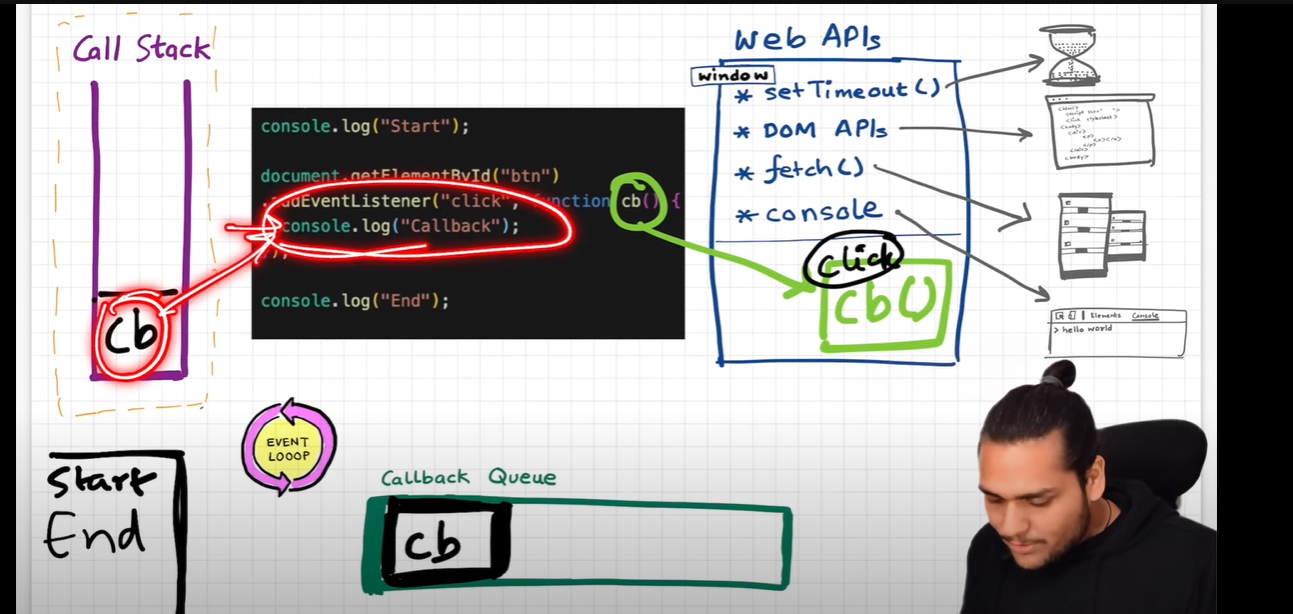 Call Stack
cb
console.log("Start");
document.getElementById("btn")
.addEventListener("click", function cb() {
console.log("Callback");
});
console.log("End");
Web APIs
window
* setTimeout()
* DOM APIs
* fetch()
* console
click
cb()
Elements Console
> hello world
EVENT
LOOOP
Start
End
Callback Queue
cb